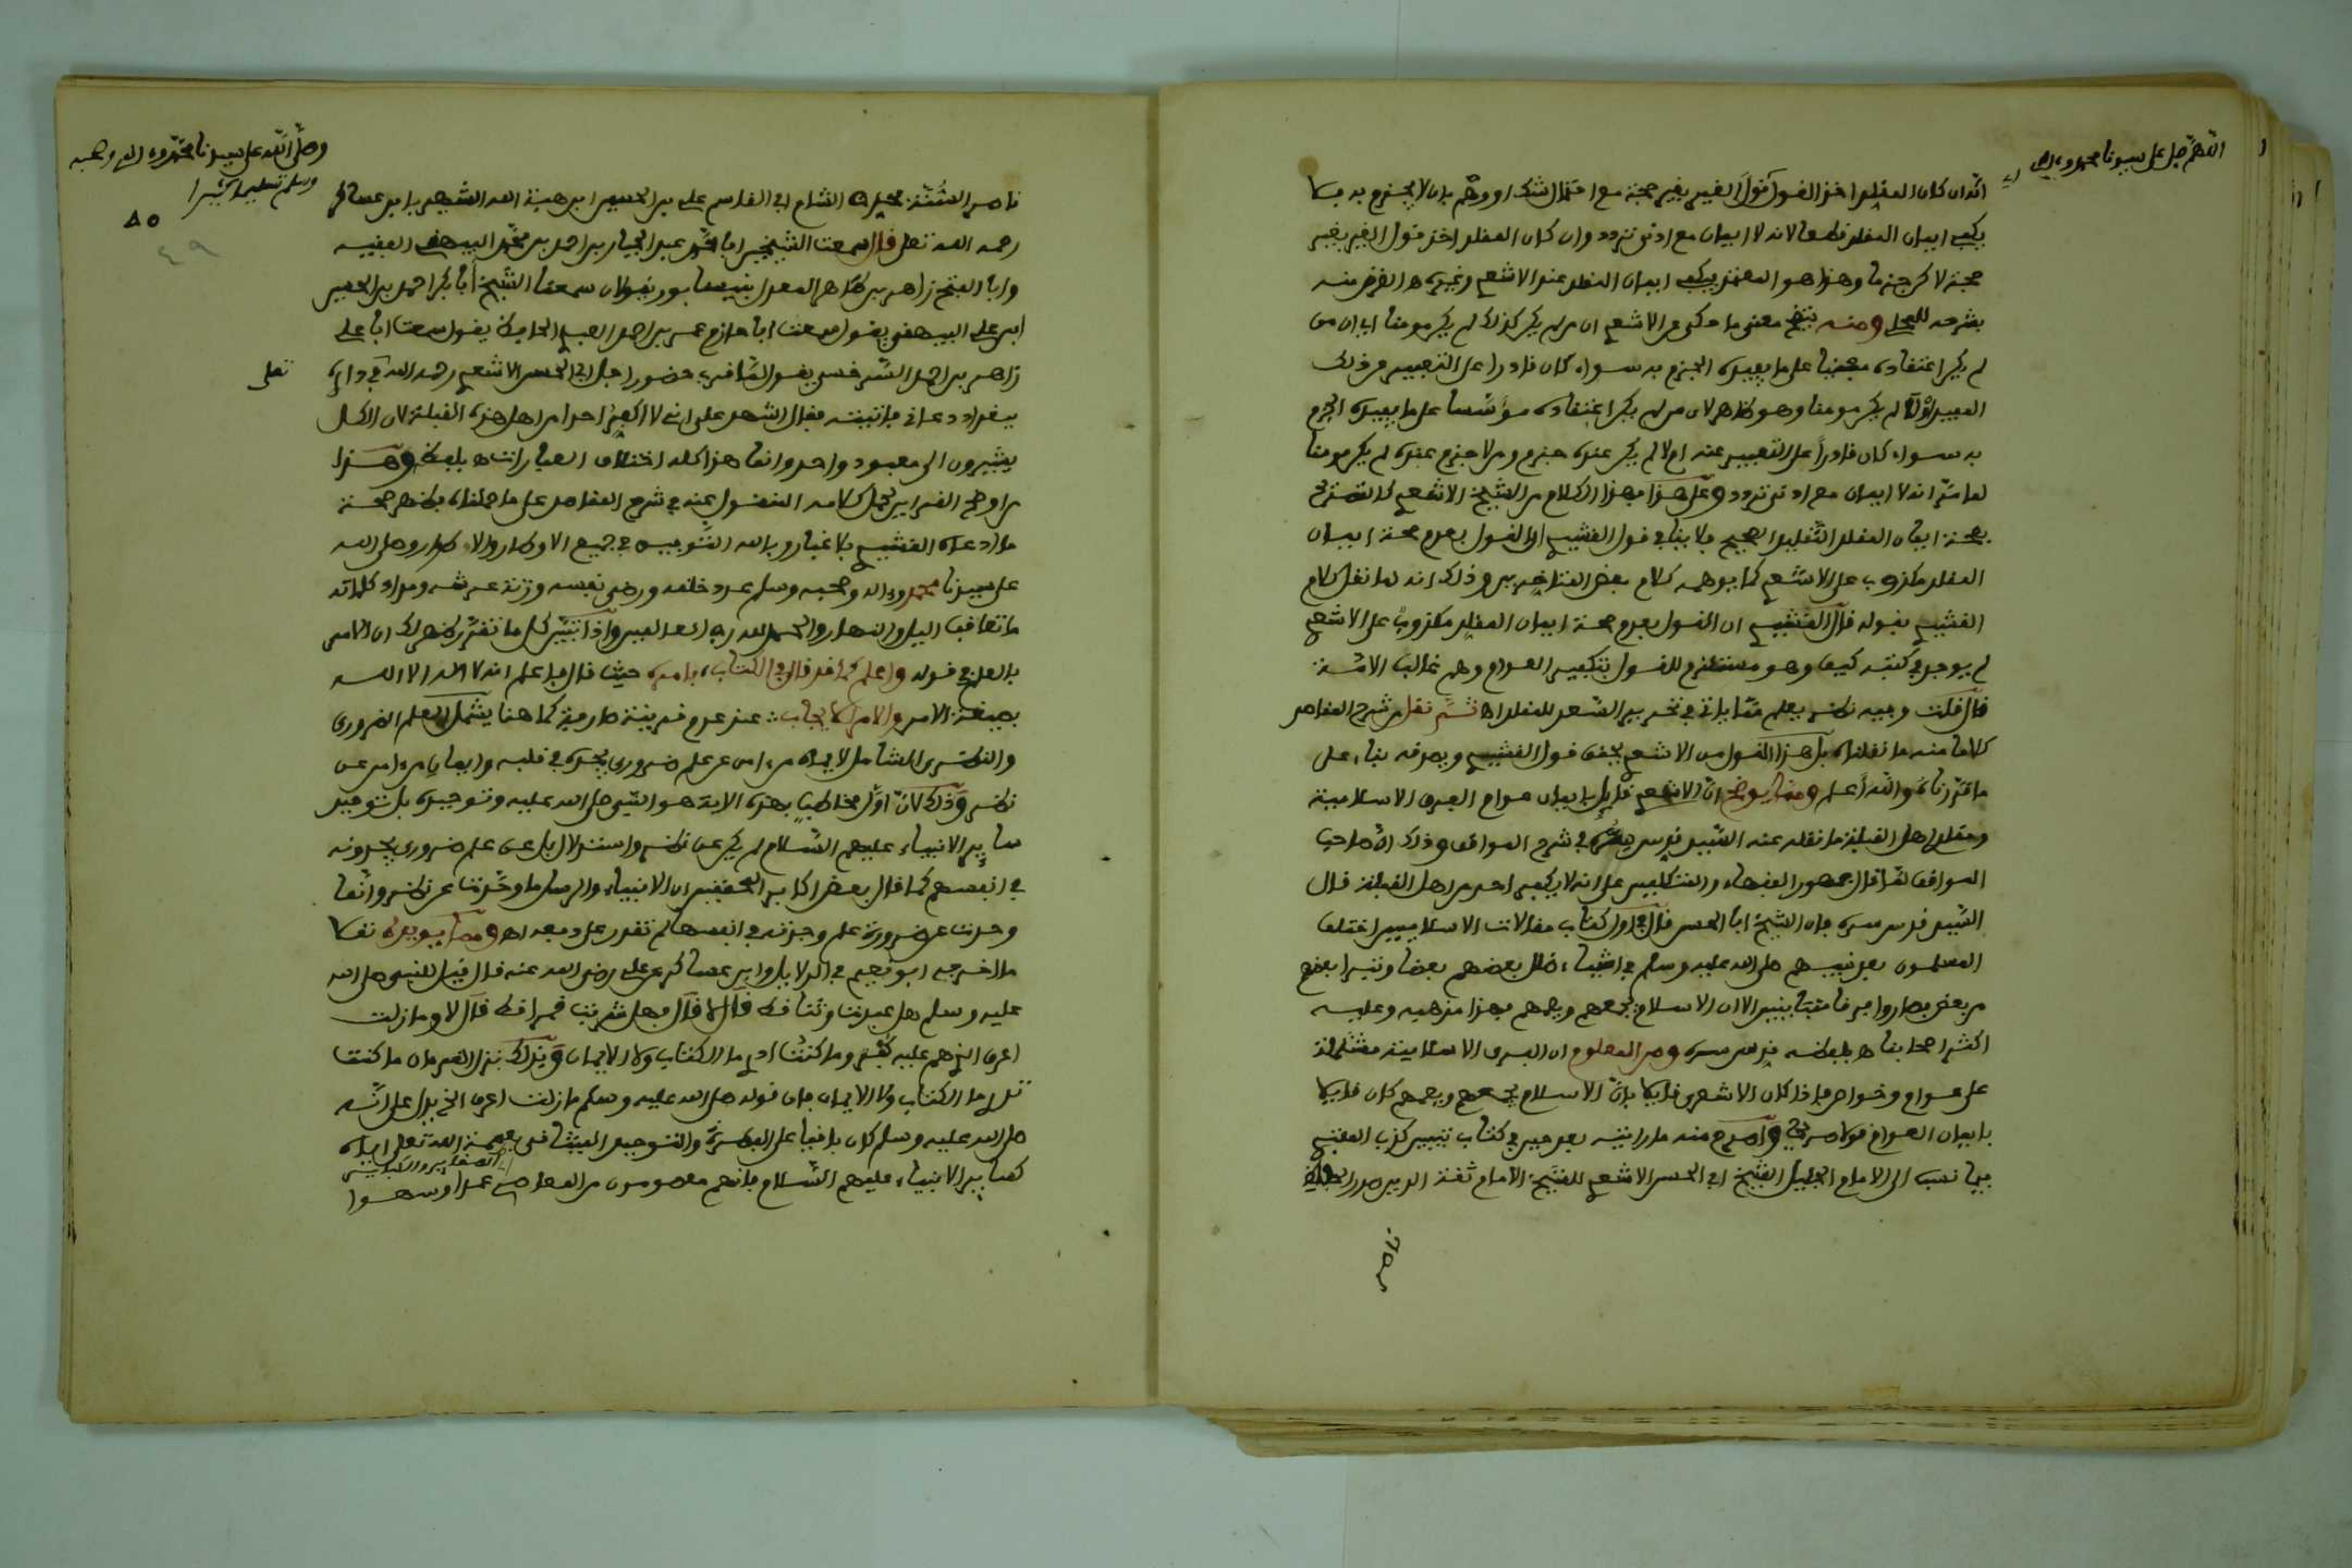 اللهم صل على سيدنا محمد وءاله
انه ان كان المقلد اخذ القول قول الغير بغير حجة مع احتمال الشك او وهم بان لا يجزم به فلا
يكفي ايمان المقلد قطعا لانه لا ايمان مع ادنى تردد وان كان المقلد اخذ قول الغير بغير
حجة لا كن جزما وهذا هو المعتمد يكفي ايمان المقلد عند الاشعري وغيره اه الغرض منه
بشرحه للمحلي ومنه يتضح معنى ما حكي عن الاشعري ان من لم يكن كذلك لم يكن مومنا اي ان من
لم يكن اعتقاده مبنيا على ما يفيده الجزم به سواء كان قادرا على التعبير عن ذلك
المفيد او لا لم يكن مومنا وهو ظاهر لان من لم يكن اعتقاده مؤسسا على ما يفيده الجزم
به سواء كان قادرا على التعبير عنه ام لا لم يكن عنده جزم ومن لا جزم عنده لم يكن مومنا
لما مر انه لا ايمان مع ادنى تردد وعلى هذا فهذا الكلام من الشيخ الاشعري كالتصريح
بصحة ايمان المقلد التقليد الصحيح فلا ينافي قول القشيري ان القول بعدم صحة ايمان
المقلد مكذوب على الاشعري كما يوهمه كلام بعض المتاخرين وذلك انه لما نقل كلام
القشيري بقوله قال القشيري ان القول بعدم صحة ايمان المقلد مكذوب على الاشعري
لم يوجد في كتبه كيف وهو مستلزم للقول بتكفير العوام وهم غالب الامة
قال قلت وفيه نظر يعلم مما ياتي في تحرير السعد للمقلد اه ثم نقل من شرح المقاصد
كلاما منه ما نقلناه بل هذا القول من الاشعري يحقق قول القشيري ويصدقه بناء على
ما قررناه والله اعلم ومما يوضح ان الاشعري قايل بايمان عوام الفرق الاسلامية
ومقلدي اهل القبلة ما نقله عنه السيد قدس سره في شرح المواقف وذلك ان صاحب
المواقف لما قال جمهور الفقهاء والمتكلمين على انه لا يكفر احد من اهل القبلة قال
السيد قدس سره فان الشيخ ابا الحسن قال في اول كتاب مقالات الاسلاميين اختلف
المسلمون بعد نبيهم صلى الله عليه وسلم في اشياء ضلل بعضهم بعضا وتبرا بعضهم
من بعض فصاروا فرقا متباينين الا ان الاسلام يجمعهم ويعمهم فهذا مذهبه وعليه
اكثر اصحابنا اه بلفظه قدس سره ومن المعلوم ان الفرق الاسلامية مشتملة
على عوام وخواص فاذا كان الاشعري قايلا بان الاسلام يجمعهم ويعمهم كان قايلا
بايمان العوام قولا صريحا واصرح منه ما رايته بعد حين في كتاب تبيين كذب المفتري
فيما نسب الى الامام الجليل الشيخ ابي الحسن الاشعري للشيخ الامام ثقة الدين صدر الحفاظ
ناصر
وصلى الله على سيدنا محمد وءاله وصحبه
وسلم تسليما كثيرا
٨٥
٤٩
ناصر السنة محدث الشام ابي القاسم علي بن الحسن بن هبة الله الشهير بابن عساكر
رحمه الله تعلى قال سمعت الشيخين ابا محمد عبد الجبار بن احمد بن محمد البيهقي الفقيه
وابا الفتح زاهر بن طاهر المعدل بنيسابور يقولان سمعنا الشيخ ابا بكر احمد بن الحسين
ابن علي البيهقي يقول سمعت ابا حازم عمر بن احمد العبدوي الحافظ يقول سمعت ابا علي
زاهر بن احمد السرخسي يقول لما قرب حضور اجل ابي الحسن الاشعري رحمه الله تعلى في داري
ببغداد دعاني فاتيته فقال اشهد على اني لا اكفر احدا من اهل هذه القبلة لان الكل
يشيرون الى معبود واحد وانما هذا كله اختلاف العبارات اه بلفظه وهذا
من اوضح القراين لحمل كلامه المنقول عنه في شرح المقاصد على ما حملناه فظهر صحة
ما ادعاه القشيري بلا غبار وبالله التوفيق في جميع الاوطار والاطوار وصلى الله
على سيدنا محمد وءاله وصحبه وسلم عدد خلقه ورضى نفسه وزنة عرشه ومداد كلماته
ما تعاقب الليل والنهار والحمد لله رب العالمين واذا تبين كل ما تقرر ظهر لك ان الامر
بالعلم في قوله واعلم كما قد قال في الكتاب، بامره حيث قال فاعلم انه لا اله الا الله
بصيغة الامر والامر للايجاب: عند عدم قرينة صارفة كما هنا يشمل العلم الضروري
والنظري الشامل لايمان من ءامن عن علم ضروري يجده في قلبه وايمان من ءامن عن
نظر وذلك لان اول مخاطب بهذه الاية هو النبي صلى الله عليه وسلم وتوحيده بل توحيد
ساير الانبياء عليهم السلام لم يكن عن نظر واستدلال بل عن علم ضروري يجدونه
في انفسهم كما قال بعض اكابر المحققين ان الانبياء والرسل ما وحدت عن نظر وانما
وحدت عن ضرورة علم وجدته في انفسها لم تقدر على دفعه اه ومما يويده نقلا
ما اخرجه ابو نعيم في الدلايل وابن عساكر عن علي رضي الله عنه قال قيل للنبي صلى الله
عليه وسلم هل عبدت وثنا قط قال لا قال فهل شربت خمرا قط قال لا وما زلت
اعرف الذي هم عليه كفر وما كنت ادري ما الكتاب ولا الايمان وبذلك نزل القرءان ما كنت
تدري ما الكتاب ولا الايمان فان قوله صلى الله عليه وسلم ما زلت اعرف الخ يدل على انه
صلى الله عليه وسلم كان باقيا على الفطرة والتوحيد الميثاقي بعصمة الله تعلى اياه
كساير الانبياء عليهم السلام فانهم معصومون من المعاصي الصغاير والكباير عمدا وسهوا